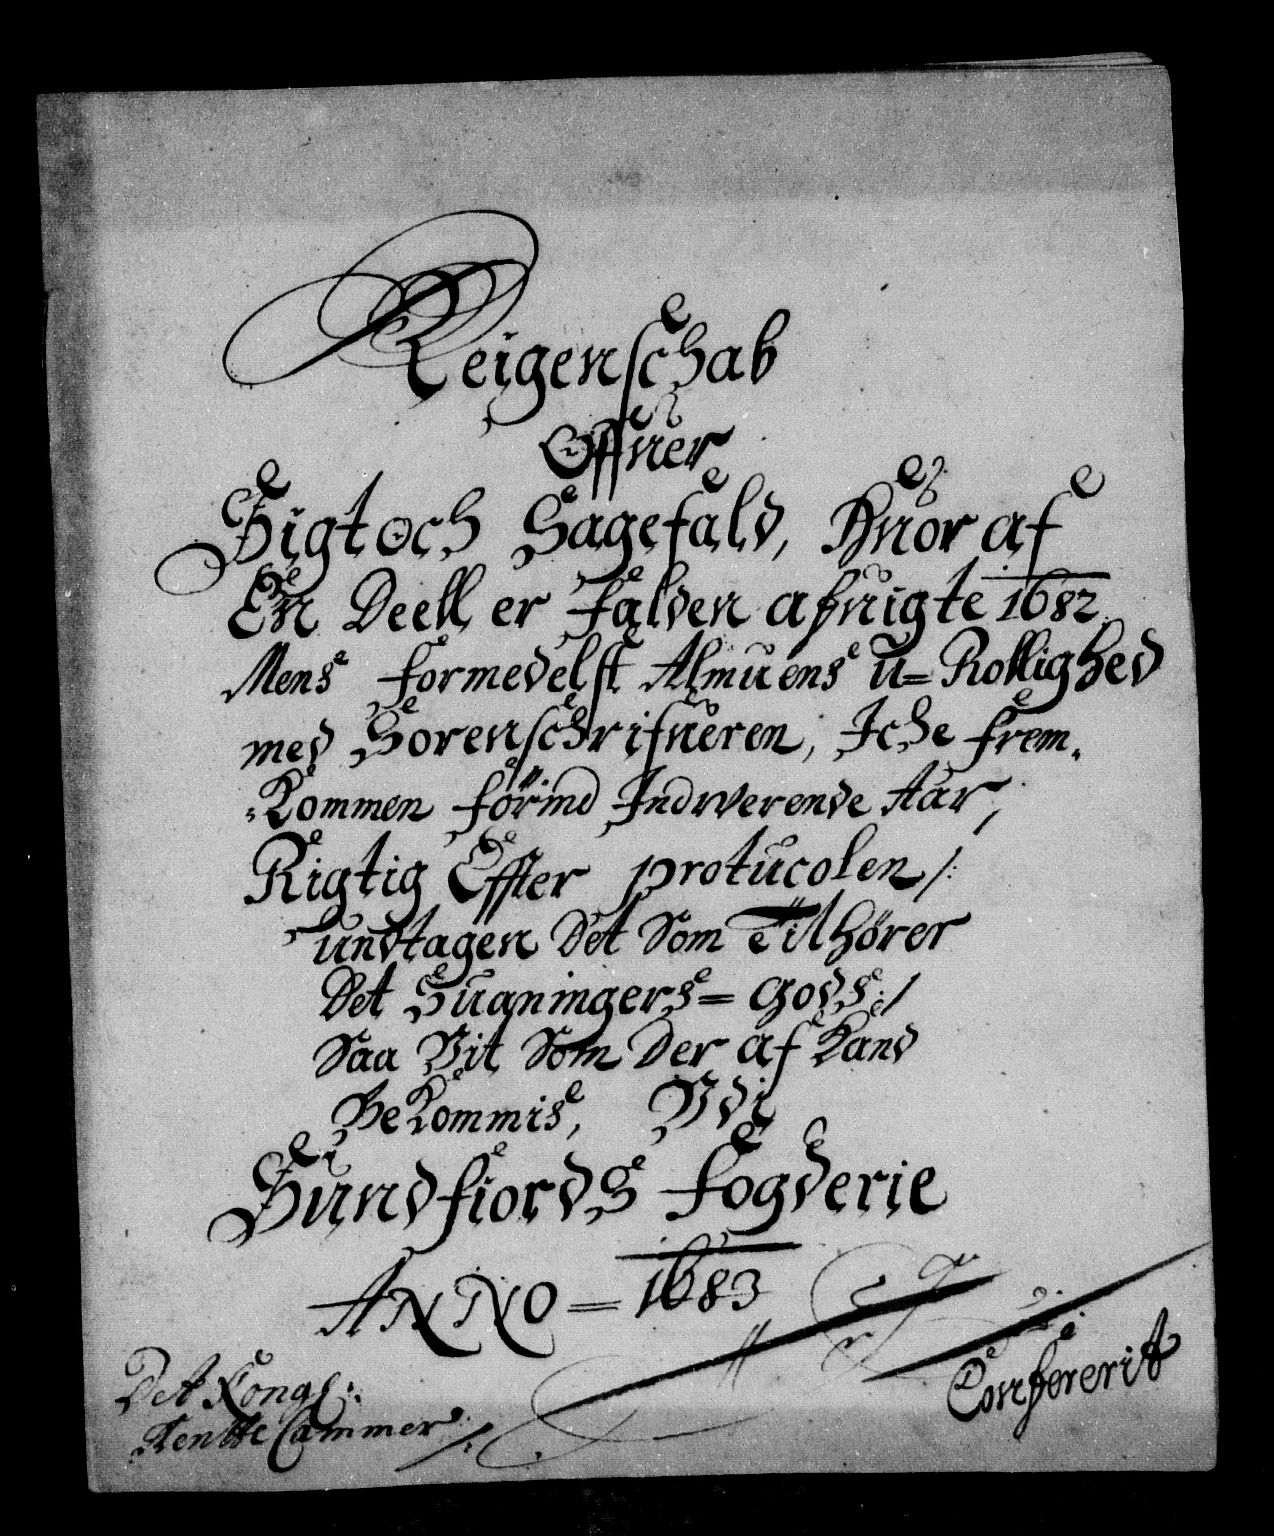 Reigenschab
Offuer
Sigt och Sagefald, Huor af
En Deell er falden afuigte 1682
Mens formedelst Almuens u= Rollighed
med Sorenschrifueren, Iche frem„
„Kommen förind Indwerende Aar,
Rigtig Effter protucolen /:
undtagen Det Som Tilhörer
Det Suaningers= Gods :/
Saa Vit Som Der af Kand
BeKommis, Vdi
Sundfiords fogderie
ANNO = 1683
Det Kongl:
Rentte Cammer
Confererit